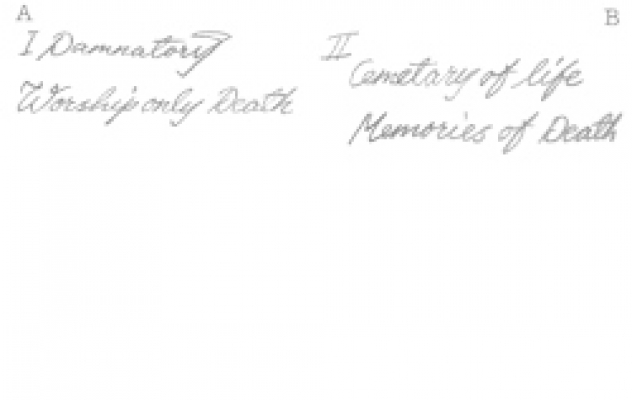 A
I Damnatory
Worship only Death
B
II
Cemetary of life
Memories of Death